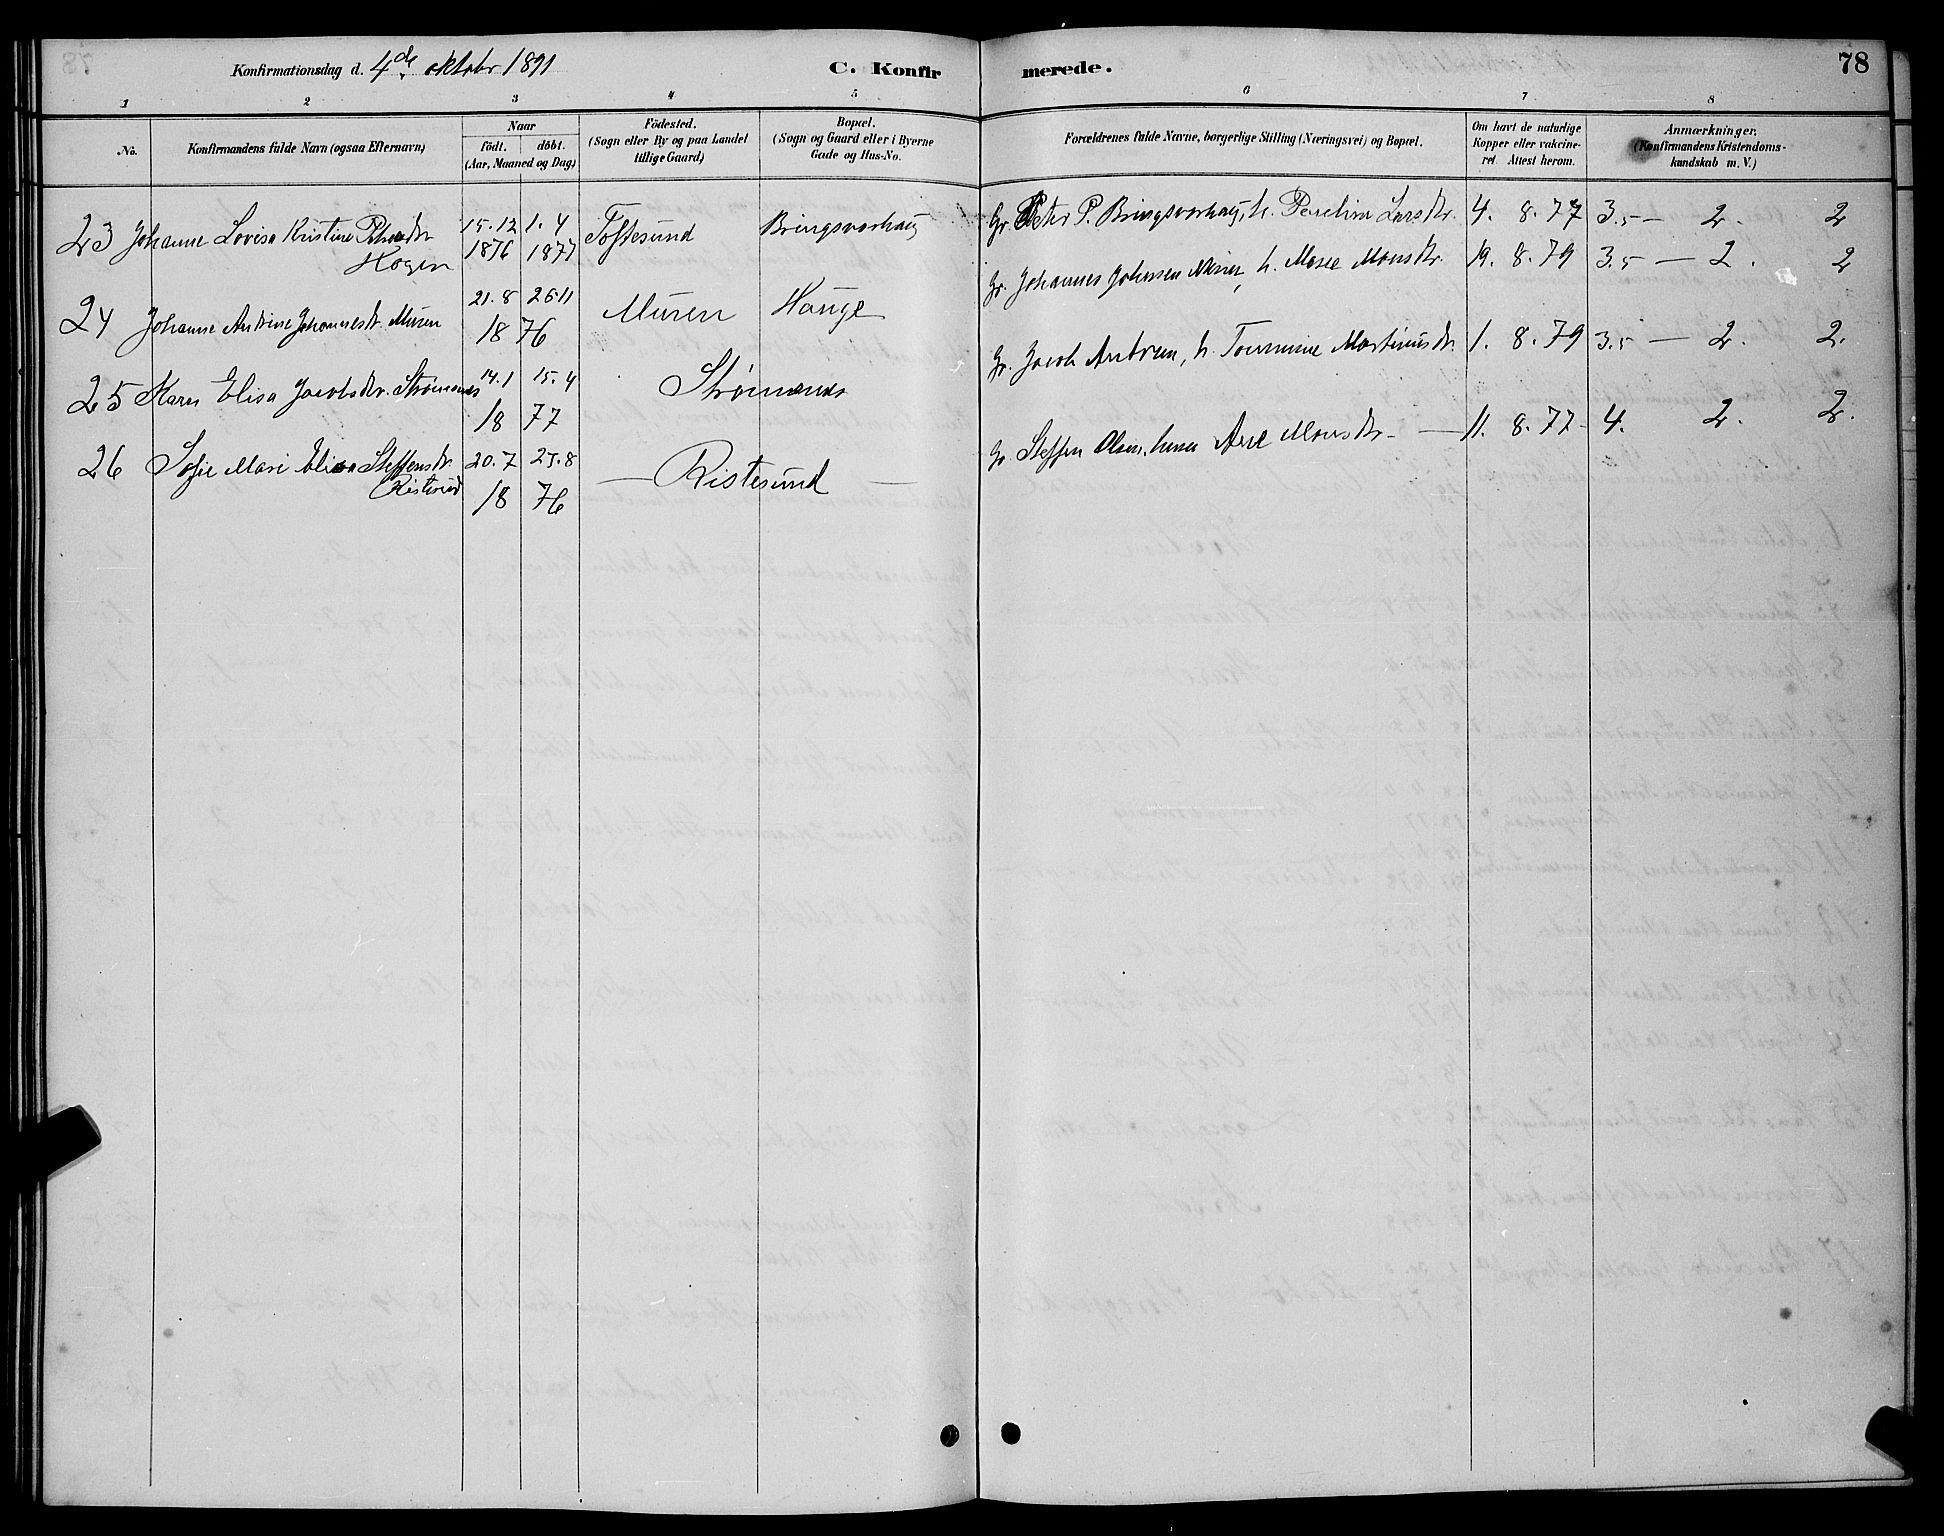 Konfirmationsdag d. 4de oktober 1891
C. Konfir
merede.
78
1 2 3 4 5 6 7 8
No.
Konfirmandens fulde Navn (ogsaa Efternavn)
Naar
födt. döbt.
(Aar, Maaned og Dag)
Födested.
(Sogn eller By og paa Landet
tillige Gaard)
Bopæl.
(Sogn og Gaard eller i Byerne
Gade og Hus-No.
Forældrenes fulde Navne, borgerlige Stilling (Næringsvei) og Bopæl.
Om havt de naturlige
Kopper eller vakcine-
ret. Attest herom.
Anmærkninger.
(Konfirmandens Kristendoms-
kundskab m. V.)
23 Johanne Lovisa Kristine Petersdtr 15.12 1.4 Toftesund Bringsvorhaug Gr. Peter P. Bringsvorhaug, h. Larsdtr. 4. 8. 77 3.5 — 2. 2
Hagen 1876 1877
24 Johanne Antrine Johannesdtr. Muren 21.8 26.11 Muren Hauge Gr. Johannes Johnsen Muren, h. Monsdtr. 19. 8. 79 3.5 — 2. 2
18 76
25 Karen Elisa Jacobsdtr. Strømanes 14.1 15.4 Strømanes Gr. Jacob h. Martinusdtr. 1. 8. 79 3.5 — 2. 2.
18 77
26 Sofie Mari Elisa Steffensdtr. 20.7 27.8 — Ristesund — Gr. Steffen Olsen, Ane Monsdtr. — 11. 8. 77 - 4. 2. 2.
Ristesund 18 76